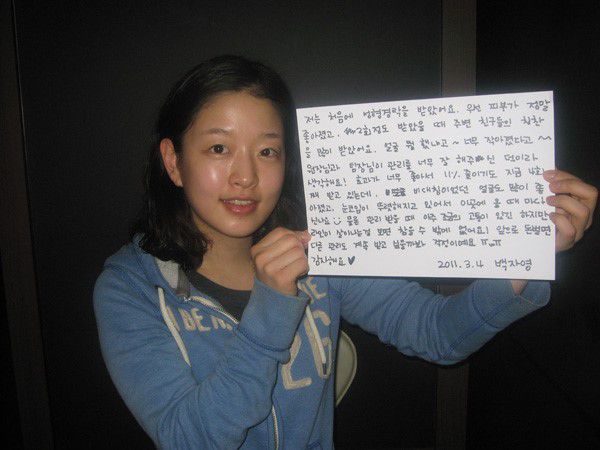 저는 처음에 성형경락을 받았어요. 우선 피부가 정말
좋아졌고, 2회정도 받았을 때 주변 친구들의 칭찬
을 많이 받았어요. 얼굴 뭘 했냐고~ 너무 작아졌다고~~
원장님과 팀장님이 관리를 너무 잘 해주신 덕이라
생각해요! 효과가 너무 좋아서 11% 줄이기도 지금 4회
째 받고 있는데, 비대칭이었던 얼굴도 많이 좋
아졌고, 눈코입이 뚜렷해지고 있어서 이곳에 올 때마다
신나요 물론 관리 받을 때 아주 조금의 고통이 있긴 하지만
라인이 살아나는걸 보면 참을 수 밖에 없어요! 앞으로 돈벌면
다른 관리도 계속 받고 싶을까봐 걱정이예요 ㅠㅠ
감사해요♥ 2011.3.4 백자영
BE
26